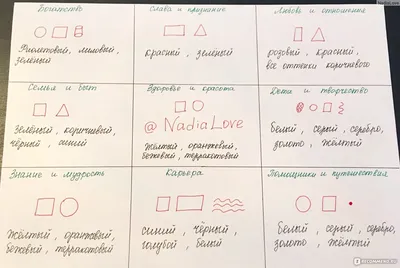 Богатство
Фиолетовый, лиловый,
зелёный
Слава и признание
красный, зелёный
Любовь и отношения
розовый, красный,
все оттенки коричневого
Семья и быт
Зелёный, коричневый,
чёрный, синий
Здоровье и красота
@NadiaLove
Жёлтый, оранжевый,
бежевый, терракотовый
Дети и творчество
Белый, серый, серебро,
золото, жёлтый
Знание и мудрость
Жёлтый, оранжевый,
бежевый, терракотовый
Карьера
синий, чёрный,
голубой, белый
Помощники и путешествия
Белый, серый, серебро,
золото, жёлтый